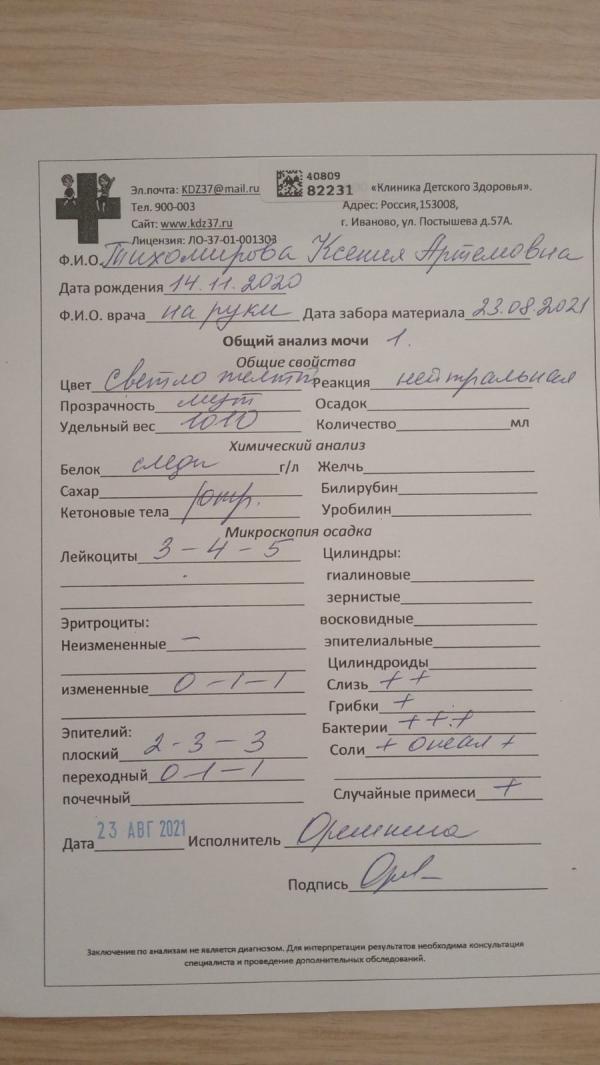 40809
Эл.почта: KDZ37@mail.ru 82231 «Клиника Детского Здоровья».
Тел. 900-003 Адрес: Россия,153008,
Сайт: www.kdz37.ru г. Иваново, ул. Постышева д.57А.
Лицензия: ЛО-37-01-001303
Ф.И.О. Тихомирова Ксения Артемовна
Дата рождения 14.11.2020
Ф.И.О. врача на руки Дата забора материала 23.08.2021
Общий анализ мочи 1.
Общие свойства
Цвет светло желт Реакция нейтральная
Прозрачность мут Осадок
Удельный вес 1010 Количество мл
Химический анализ
Белок следы г/л Желчь
Сахар Билирубин
Кетоновые тела отр. Уробилин
Микроскопия осадка
Лейкоциты 3-4-5 Цилиндры:
гиалиновые
зернистые
Эритроциты: восковидные
Неизмененные — эпителиальные
Цилиндроиды
измененные 0-1-1 Слизь ++
Грибки +
Эпителий: Бактерии +++
плоский 2-3-3 Соли + оксал +
переходный 0-1-1
почечный Случайные примеси +
Дата 23 АВГ 2021 Исполнитель
Подпись
Заключение по анализам не является диагнозом. Для интерпретации результатов необходима консультация
специалиста и проведение дополнительных обследований.